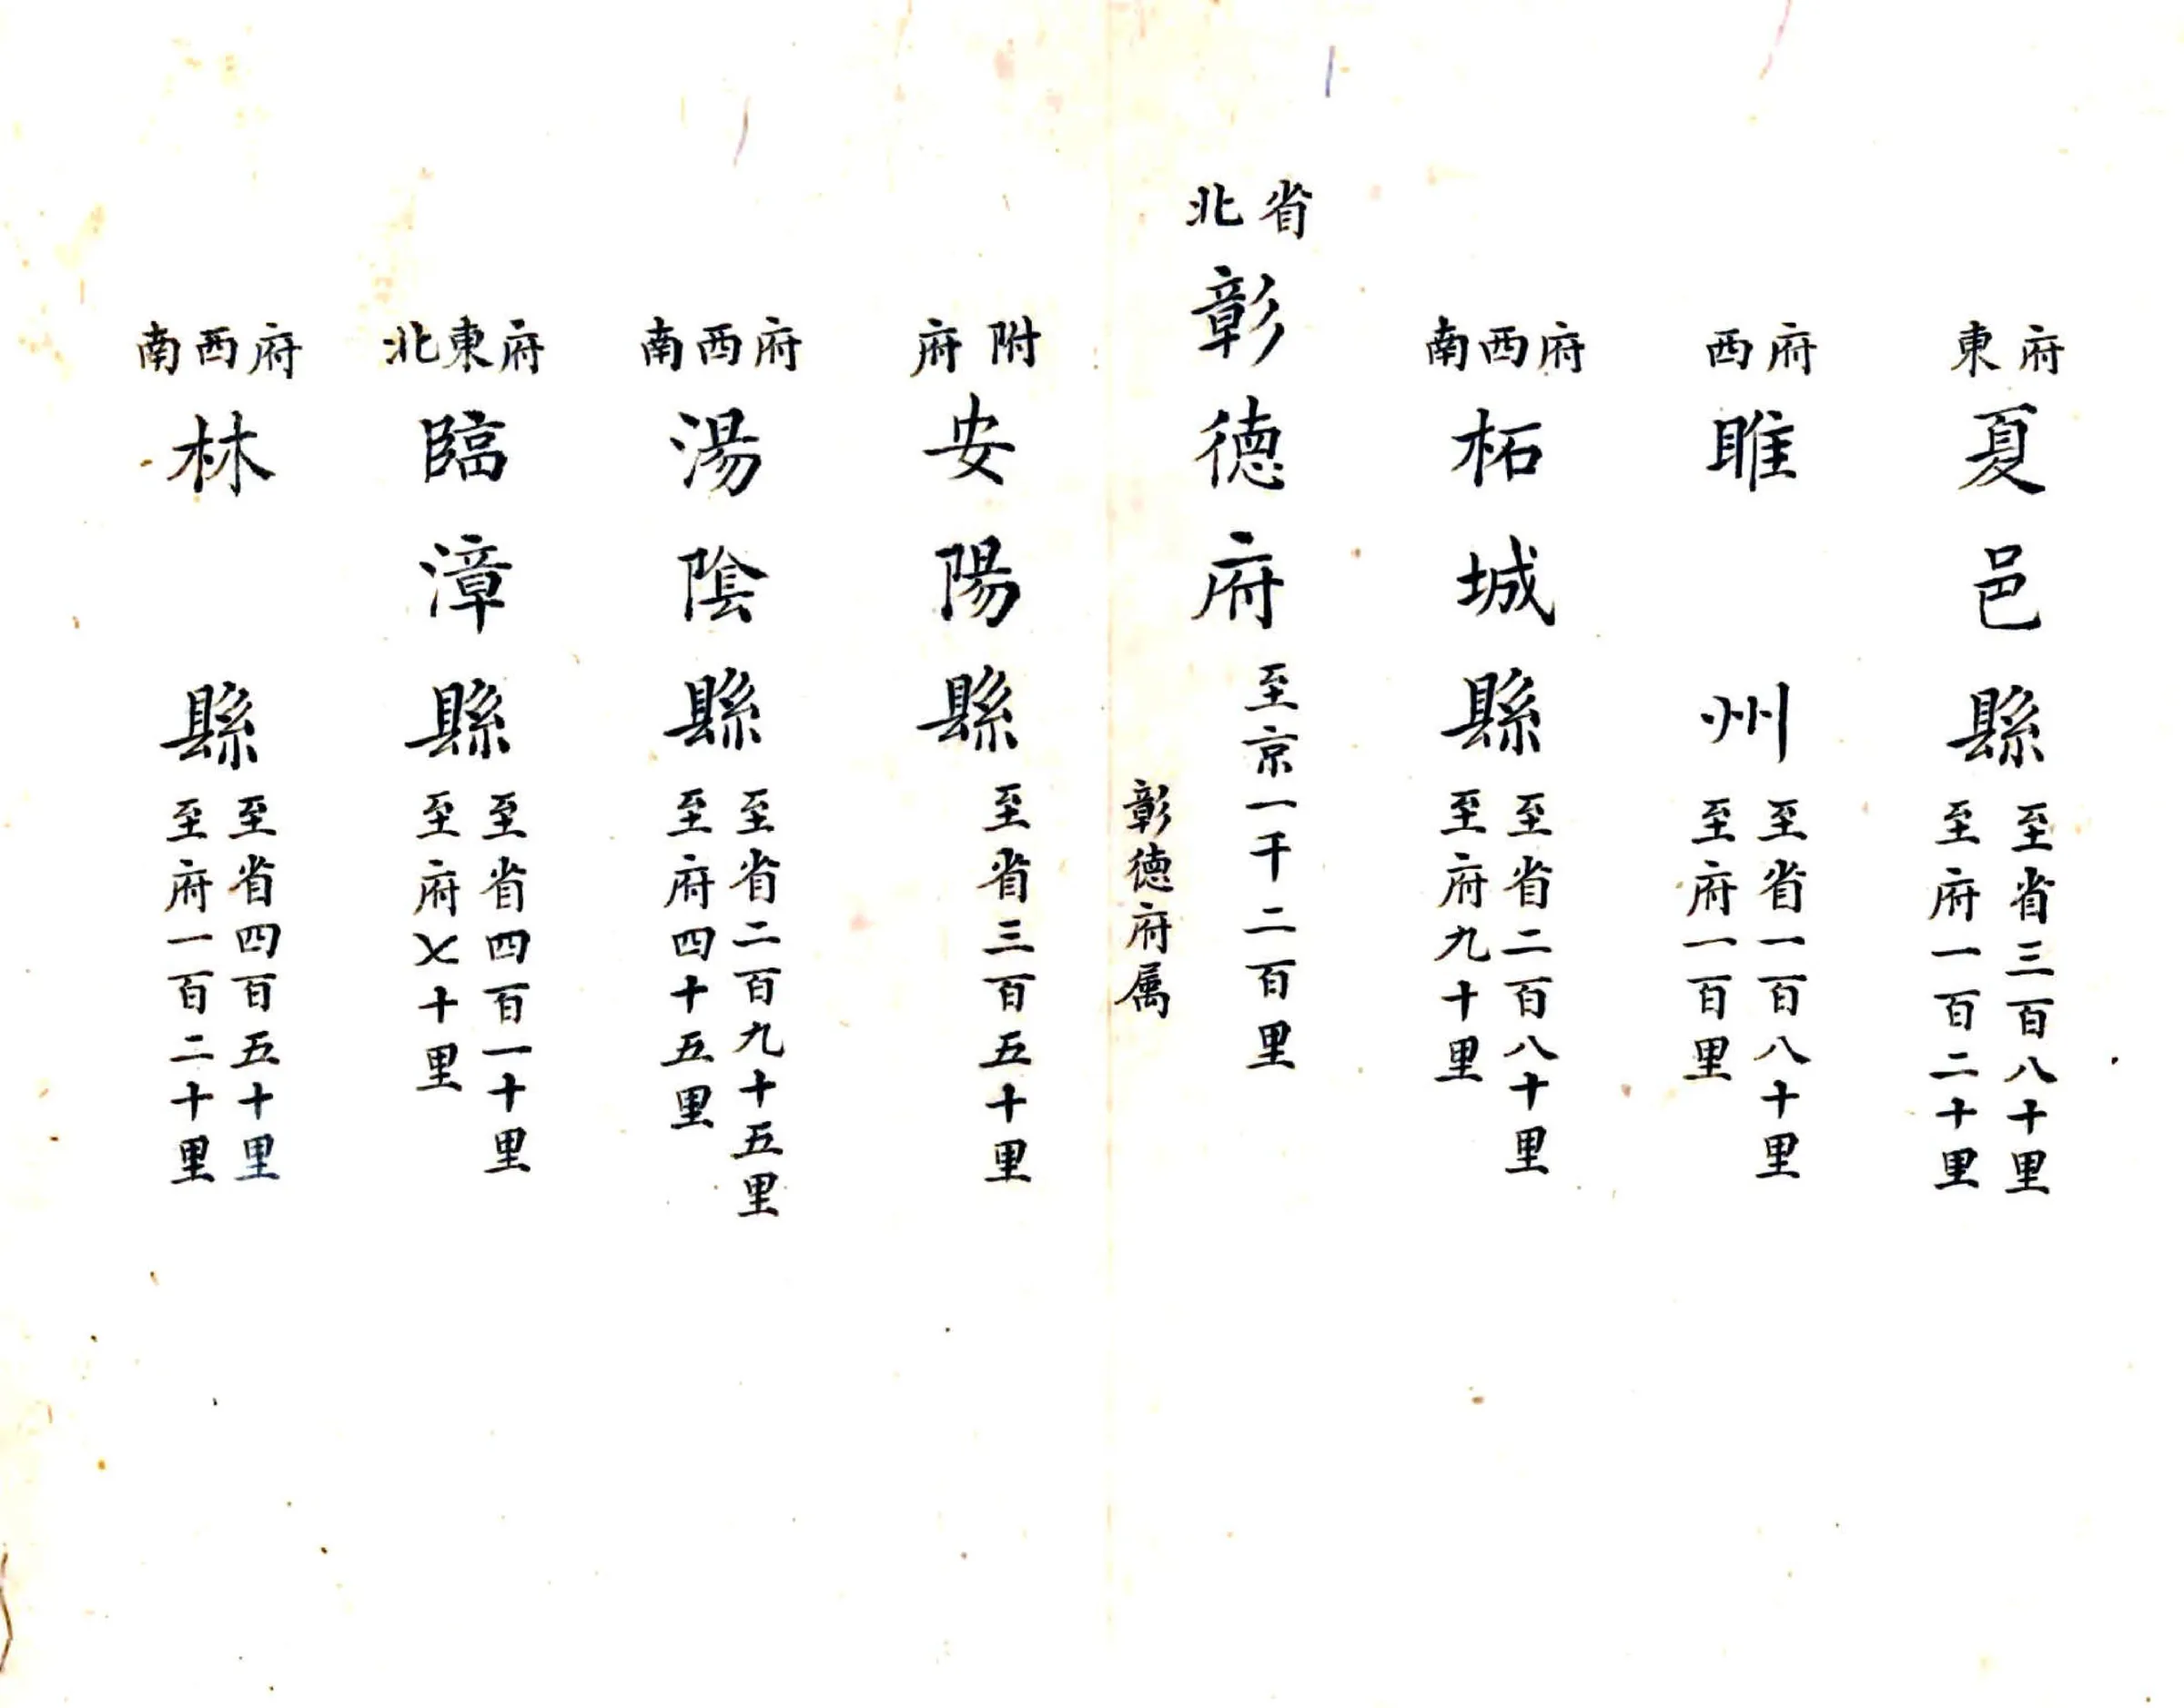 府東
夏邑縣
至省三百八十里
至府一百二十里
府西
睢州
至省一百八十里
至府一百里
府西南
柘城縣
至省二百八十里
至府九十里
省北
彰德府
至京一千二百里
彰德府属
附府
安陽縣
至省三百五十里
府西南
湯陰縣
至省二百九十五里
至府四十五里
府東北
臨漳縣
至省四百一十里
至府七十里
府西南
林縣
至省四百五十里
至府一百二十里